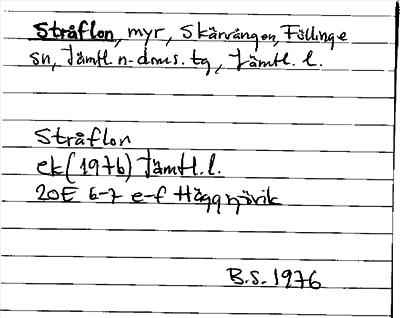 Stråflon, myr, Skärvången, Föllinge
sn, Jämtl. n. doms. tg, Jämtl. l.
Stråflon
ek (1976) Jämtl. l.
20E 6-7 e-f Häggsjövik
B.S. 1976